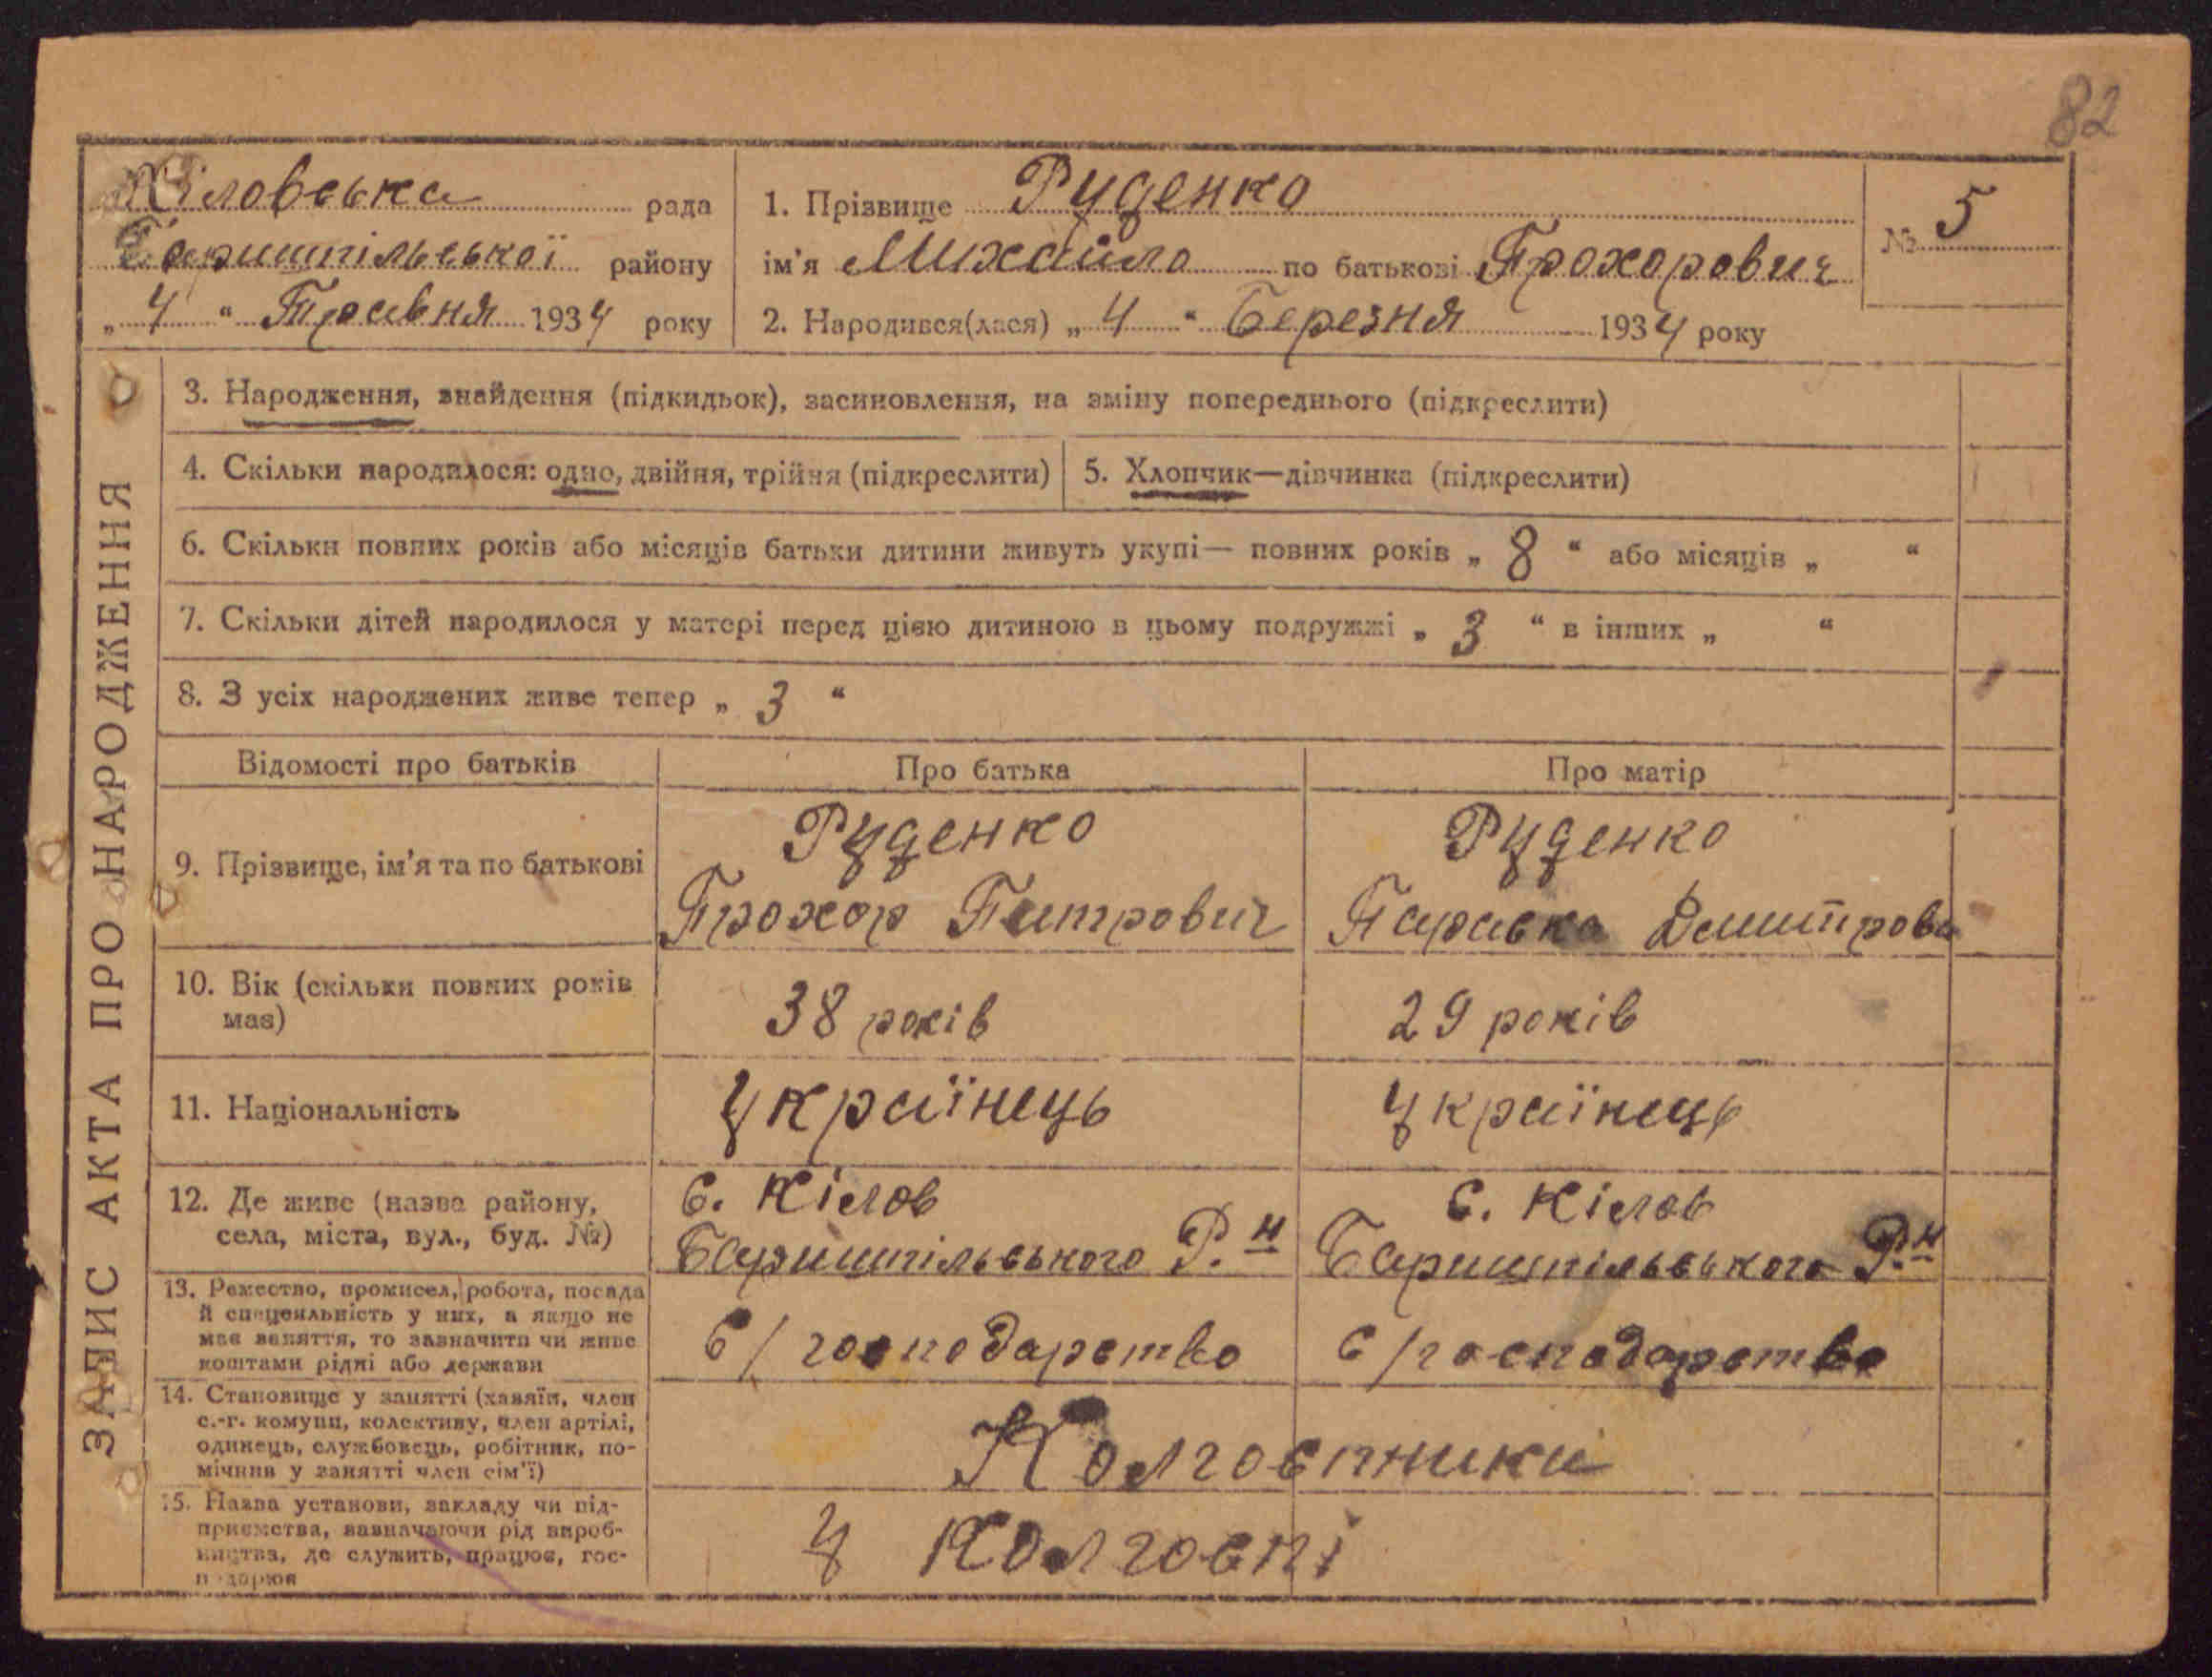 82
Кіловська рада
Баришпільської району
„ 4 “ Травня 1934 року
1. Прізвище Руденко
ім'я Михайло по батькові Прохорович
№ 5
2. Народився(лася) „ 4 “ Березня 1934 року
ЗАПИС АКТА ПРО НАРОДЖЕННЯ
3. Народження, знайдення (підкидьок), засиновлення, на зміну попереднього (підкреслити)
4. Скільки народилося: одно, двійня, трійня (підкреслити)
5. Хлопчик—дівчинка (підкреслити)
6. Скільки повних років або місяців батьки дитини живуть укупі— повних років „ 8 “ або місяців „ “
7. Скільки дітей народилося у матері перед цією дитиною в цьому подружжі „ 3 “ в інших „ “
8. З усіх народжених живе тепер „ 3 “
Відомості про батьків
Про батька
Про матір
9. Прізвище, ім'я та по батькові
Руденко
Прохор Питрович
Руденко
Параска Дмитрова
10. Вік (скільки повних років
має)
38 років
29 років
11. Національність
Українець
Українець
12. Де живе (назва району,
села, міста, вул., буд. №)
с. Кілов
Баришпільського Р.н
с. Кілов
Баришпільського Р.н
13. Ремество, промисел, робота, посада
й спеціяльність у них, а якщо не
має заняття, то зазначити чи живе
коштами рідні або держави
с/господарство
с/господарство
14. Становище у занятті (хазяїн, член
с.-г. комуни, колективу, член артілі,
одинець, службовець, робітник, по-
мічник у занятті член сім'ї)
Колгоспники
15. Назва установи, закладу чи під-
приємства, зазначаючи рід вироб-
ництва, де служить, працює, гос-
подарює
У Колгоспі